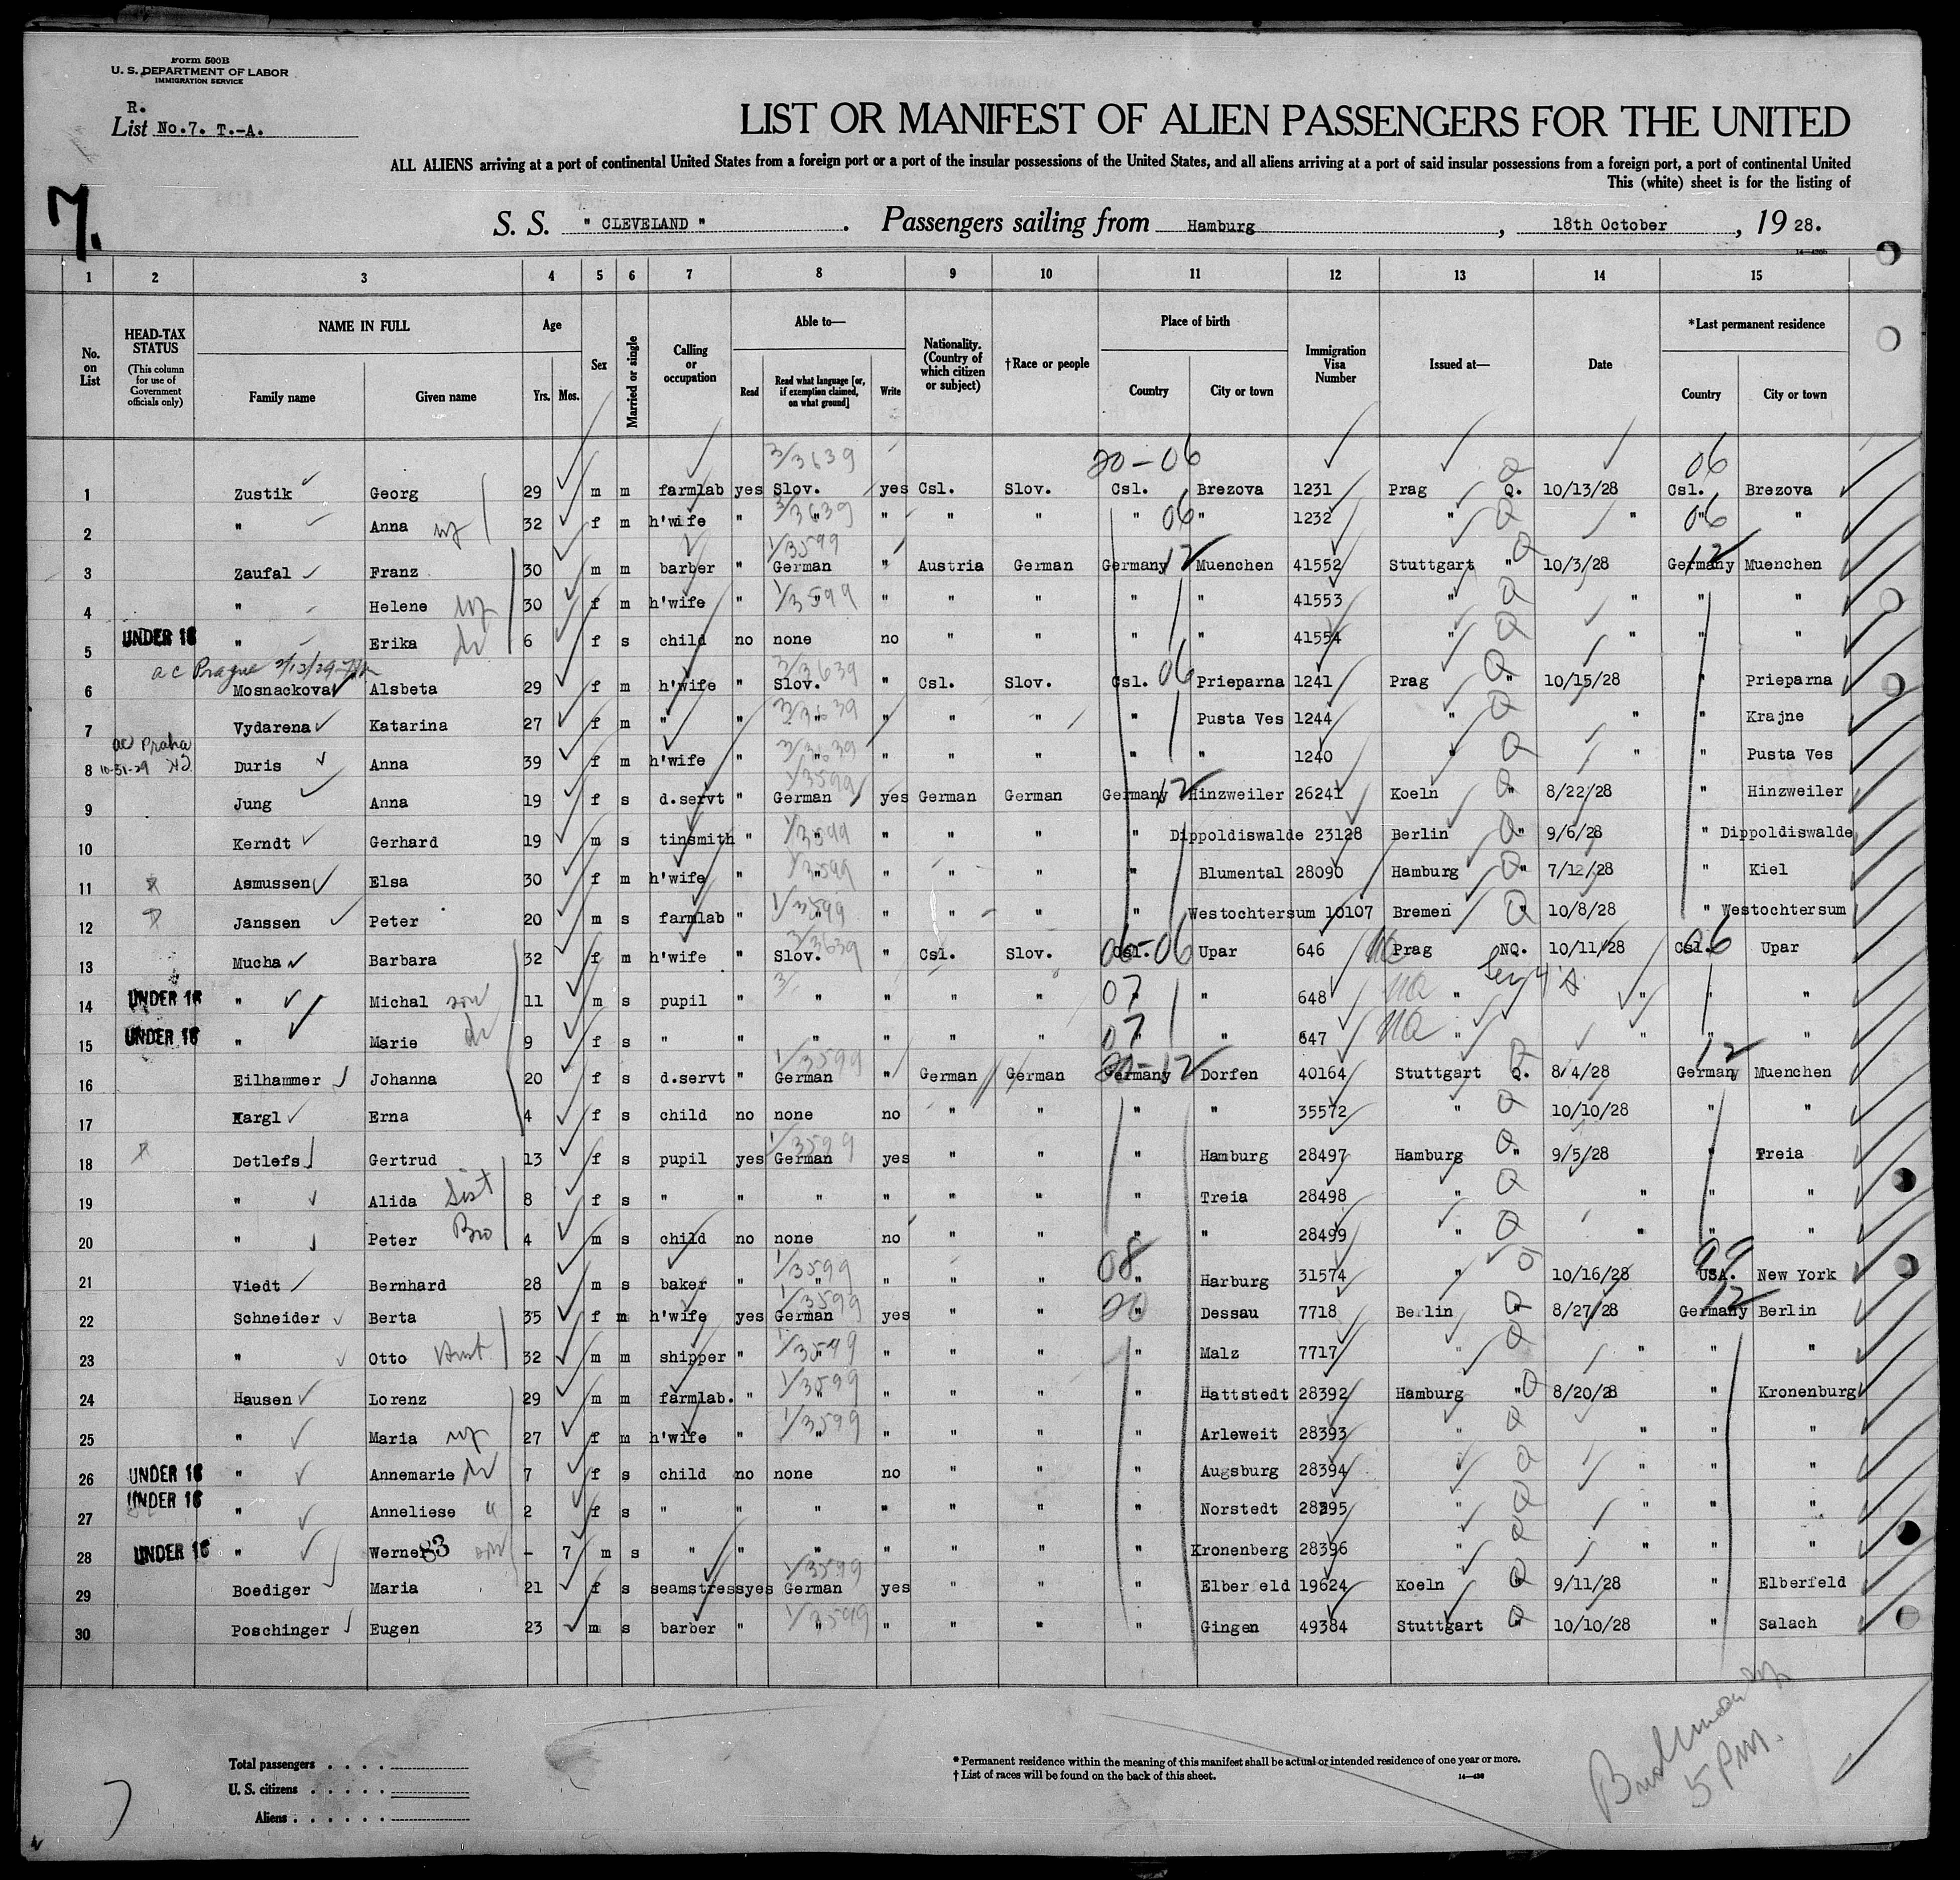 Form 500B
U. S. DEPARTMENT OF LABOR
IMMIGRATION SERVICE
R.
List No.7. T.-A.
LIST OR MANIFEST OF ALIEN PASSENGERS FOR THE UNITED
ALL ALIENS arriving at a port of continental United States from a foreign port or a port of the insular possessions of the United States, and all aliens arriving at a port of said insular possessions from a foreign port, a port of continental United
This (white) sheet is for the listing of
7.
S. S. " CLEVELAND ". Passengers sailing from Hamburg, 18th October, 19 28.
1 2 3 4 5 6 7 8 9 10 11 12 13 14 15
No. on List
HEAD-TAX STATUS (This column for use of Government officials only)
NAME IN FULL Family name Given name
Age Yrs. Mos.
Sex
Married or single
Calling or occupation
Able to— Read Read what language [or, if exemption claimed, on what ground] Write
Nationality. (Country of which citizen or subject)
†Race or people
Place of birth Country City or town
Immigration Visa Number
Issued at—
Date
*Last permanent residence Country City or town
3/3639 20-06 06
1 Zustik Georg 29 m m farmlab yes Slov. yes Csl. Slov. Csl. Brezova 1231 Prag Q. 10/13/28 Csl. Brezova
2 " Anna wf 32 f m h'wife " 3/3639 " " " " " 06 " 1232 " Q " 06 " "
3 Zaufal Franz 30 m m barber " 1/3599 German " Austria German Germany 12 Muenchen 41552 Stuttgart " Q 10/3/28 Germany 12 Muenchen
4 " Helene wf 30 f m h'wife " 1/3599 " " " " " " 41553 " Q " " "
5 UNDER 16 " Erika dr 6 f s child no none no " " " " 41554 " Q " " "
ac Prague 2/13/29
6 Mosnackova Alsbeta 29 f m h'wife " 3/3639 Slov. " Csl. Slov. Csl. 06 Prieparna 1241 Prag " Q 10/15/28 " Prieparna
7 Vydarena Katarina 27 f m " " 3/3639 " " " " " Pusta Ves 1244 " Q " " Krajne
ac Praha
8 10-31-29 Duris Anna 39 f m h'wife " 3/3639 " " " " " " 1240 " Q " " Pusta Ves
9 Jung Anna 19 f s d.servt " 1/3599 German yes German German Germany 12 Hinzweiler 26241 Koeln " Q 8/22/28 " Hinzweiler
10 Kerndt Gerhard 19 m s tinsmith " 1/3599 " " " " " Dippoldiswalde 23128 Berlin " Q 9/6/28 " Dippoldiswalde
11 Asmussen Elsa 30 f m h'wife " 1/3599 " " " " " Blumental 28090 Hamburg " Q 7/12/28 " Kiel
12 Janssen Peter 20 m s farmlab " 1/3599 " " " " " Westochtersum 10107 Bremen " Q 10/8/28 " Westochtersum
13 Mucha Barbara 32 f m h'wife " 3/3639 Slov. " Csl. Slov. Csl. 06-06 Upar 646 Prag NQ. 10/11/28 Csl. 06 Upar
14 UNDER 16 " Michal son 11 m s pupil " 3/ " " " " 07 " " 648 NQ " " " "
15 UNDER 16 " Marie dr 9 f s " " " " " " 07 " " 647 NQ " " " "
16 Eilhammer Johanna 20 f s d.servt " 1/3599 German " German German Germany 20-12 Dorfen 40164 Stuttgart Q. 8/4/28 Germany 12 Muenchen
17 Kargl Erna 4 f s child no none no " " " " 35572 " Q 10/10/28 " "
18 Detlefs Gertrud 13 f s pupil yes 1/3599 German yes " " " Hamburg 28497 Hamburg " Q 9/5/28 " Treia
19 " Alida Sist 8 f s " " " " " " " Treia 28498 " Q " " "
20 " Peter Bro 4 m s child no none no " " " " 28499 " Q " " "
21 Viedt Bernhard 28 m s baker " 1/3599 " " " " 08 " Harburg 31574 " Q 10/16/28 99 USA. New York
22 Schneider Berta 35 f m h'wife yes 1/3599 German yes " " 20 " Dessau 7718 Berlin " Q 8/27/28 Germany 12 Berlin
23 " Otto 32 m m shipper " 1/3599 " " " " " Malz 7717 " Q " " "
24 Hausen Lorenz 29 m m farmlab. " 1/3599 " " " " " Hattstedt 28392 Hamburg " Q 8/20/28 " Kronenburg
25 " Maria wf 27 f m h'wife " 1/3599 " " " " " Arleweit 28393 " Q " " "
26 UNDER 16 " Annemarie dr 7 f s child no none no " " " Augsburg 28394 " Q " " "
27 UNDER 16 " Anneliese " 2 f s " " " " " " " Norstedt 28395 " Q " " "
28 UNDER 16 " Werner 83 son - 7 m s " " " " " " " Kronenberg 28396 " Q " " "
29 Boediger Maria 21 f s seamstress yes 1/3599 German yes " " " Elberfeld 19624 Koeln " Q 9/11/28 " Elberfeld
30 Poschinger Eugen 23 m s barber " 1/3599 " " " " " Gingen 49384 Stuttgart " Q 10/10/28 " Salach
Total passengers . . . .
U. S. citizens . . . . .
Aliens . . . . . .
* Permanent residence within the meaning of this manifest shall be actual or intended residence of one year or more.
† List of races will be found on the back of this sheet.
5 PM.